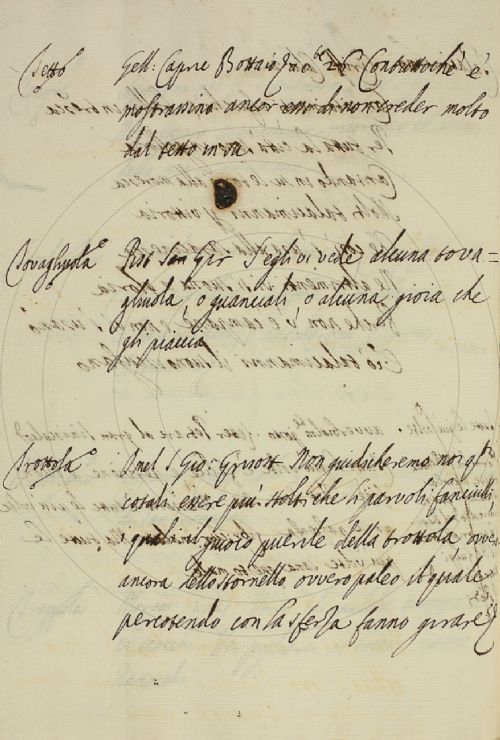 Tetto. Gell: Capric Bottaio 26 Contuttochè è
mostrassino ancor essi di non veder molto
dal tetto in su.
Tovagliuola. S'egli vi vede alcuna tova=
gliuola, o guanciali, o alcuna gioia che
gli piaccia
Trottola. Omel S Gio: Grisost Non giudicheremo noi qti
cotali essere più stolti che li parvoli fanciulli,
quali il giuoco puerile della trottola ovver
ancora dello stornello ovvero paleo il quale
percotendo con la sferza fanno girare